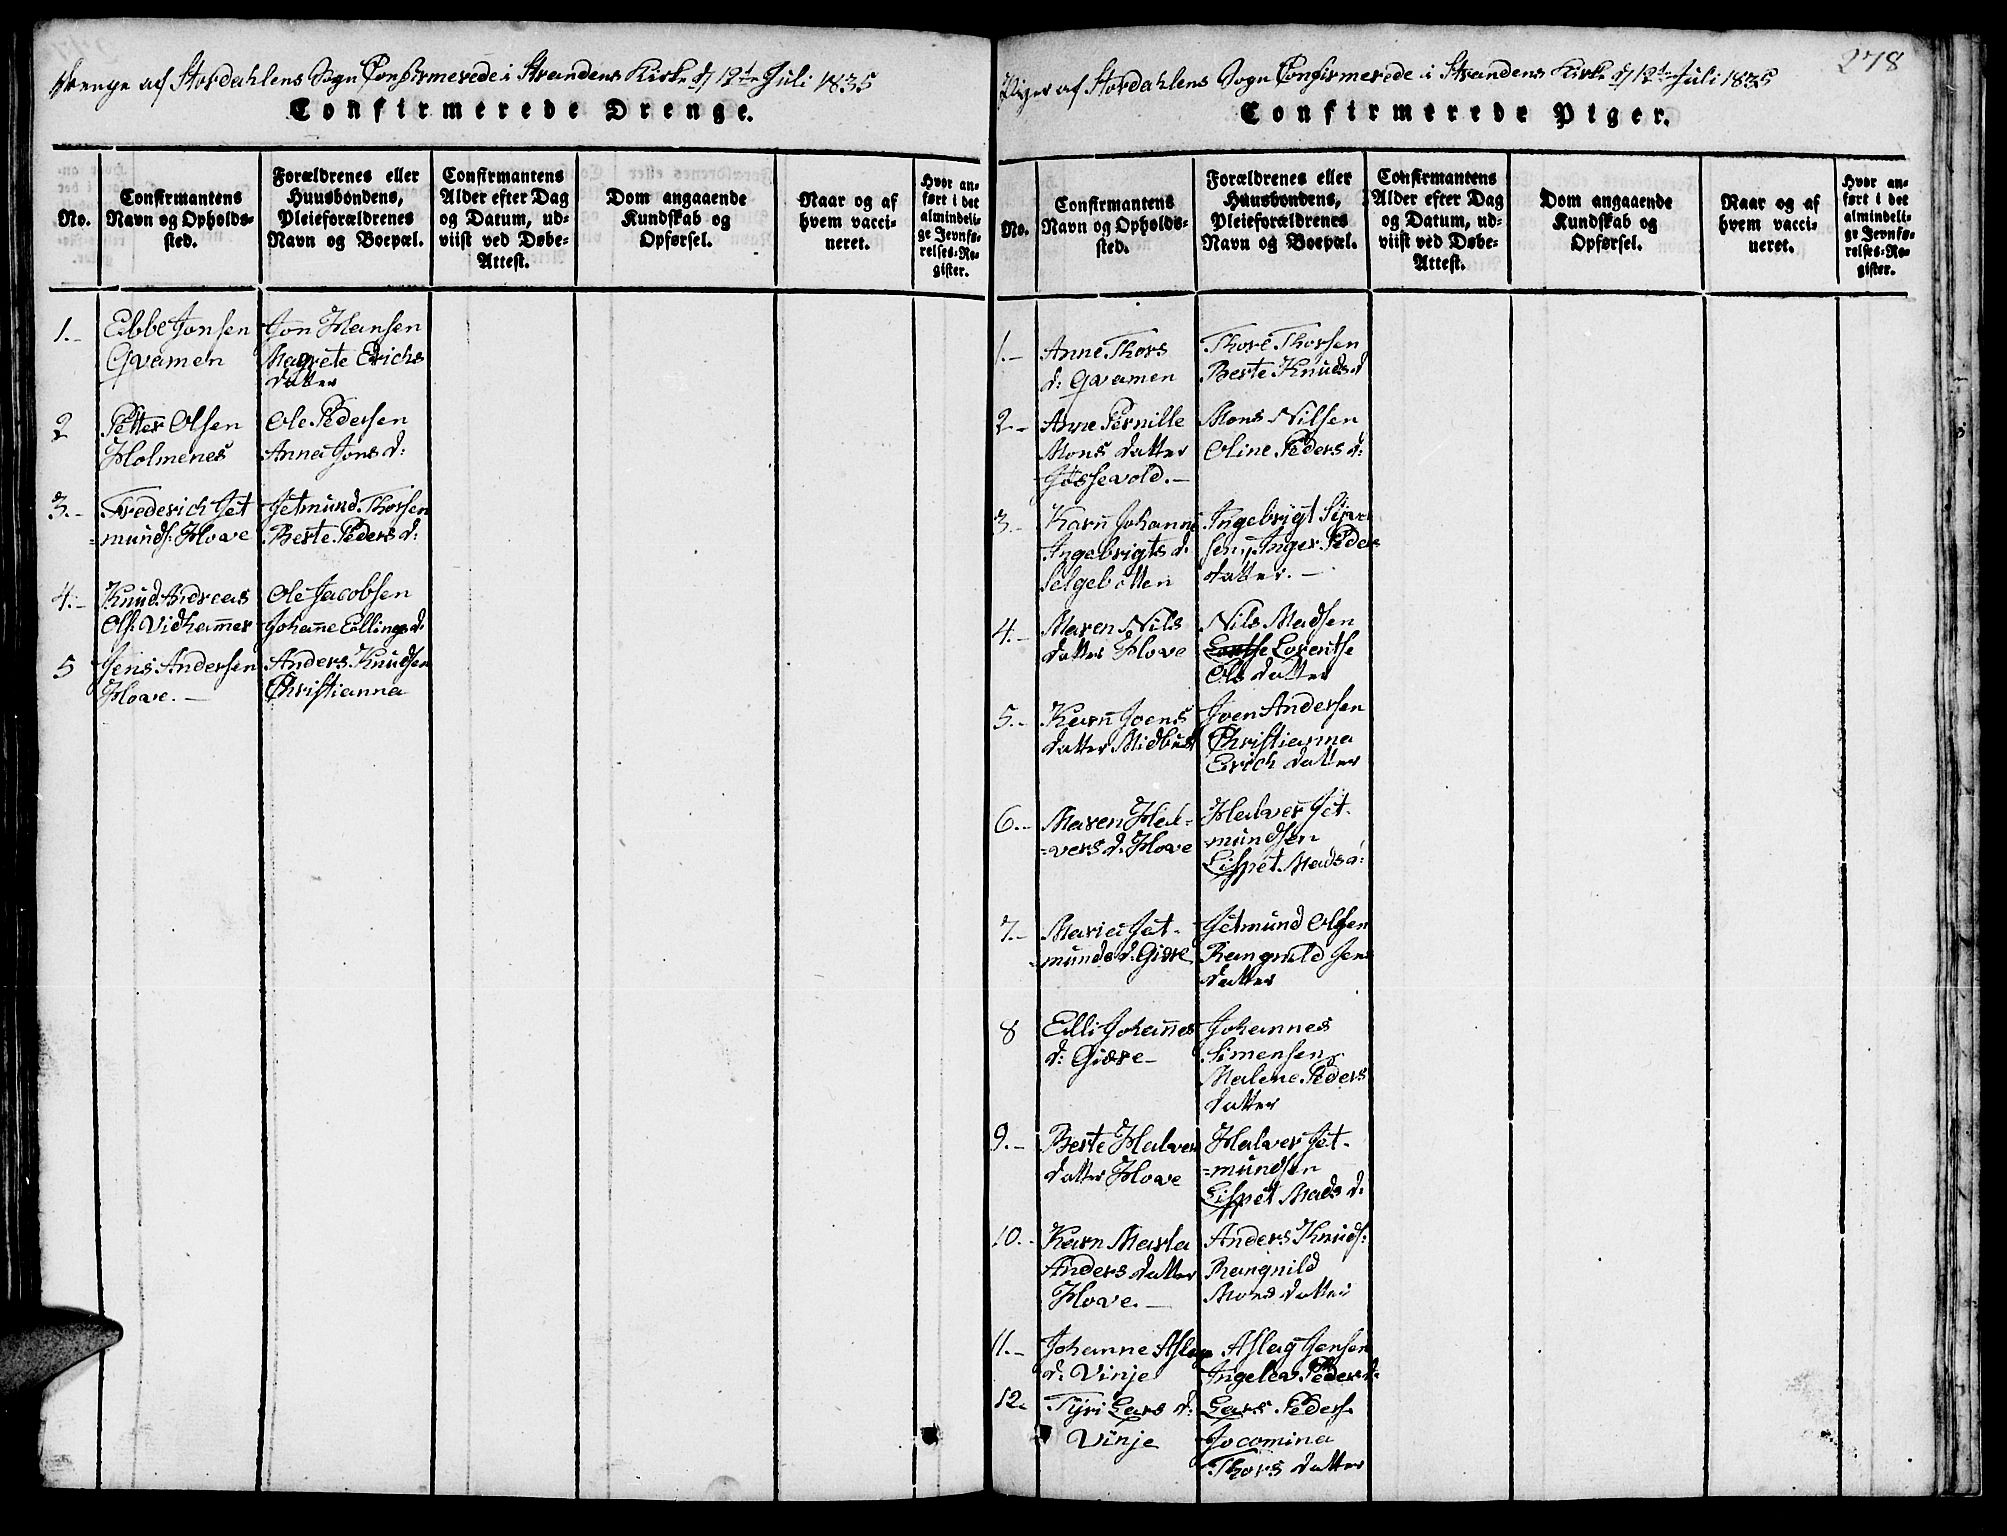 Drenge af Stordahlens Sogn Confirmerede i Strandens Kirke d 12te Juli 1835
Confirmerede Drenge.
No.
Confirmantens
Navn og Opholds-
sted.
Forældrenes eller
Huusbondens,
Pleieforældrenes
Navn og Boepæl.
Confirmantens
Alder efter Dag
og Datum, ud-
viist ved Døbe-
Attest.
Dom angaaende
Kundskab og
Opførsel.
Naar og af
hvem vacci-
neret.
Hvor an-
ført i det
almindeli-
ge Jevnfø-
relses-Re-
gister.
1.- Ebbe Jonsen
Qvamen
Jon Hansen
Magrete Erichs
datter
2 Petter Olsen
Holmenes
Ole Pedersen
Anna Jons d:
3.- Frederich Jet
=munds. Hove
Jetmund Thorsen
Berte Peders d:
4.- Knud Andreas
Ols. Vidhamer
Ole Jacobsen
Johane Ellings d:
5 Jens Andersen
Hove. —
Anders Knudsen
Christianna
278
Piger af Stordahlens Sogn Confirmerede i Strandens Kirke d 12te Juli 1835
Confirmerede Piger.
No.
Confirmantens
Navn og Opholds-
sted.
Forældrenes eller
Huusbondens,
Pleieforældrenes
Navn og Boepæl.
Confirmantens
Alder efter Dag
og Datum, ud-
viist ved Døbe-
Attest.
Dom angaaende
Kundskab og
Opførsel.
Naar og af
hvem vacci-
neret.
Hvor an-
ført i det
almindeli-
ge Jevnfø-
relses-Re-
gister.
1.- Anne Thors
d: Qvamen
Thore Thorsen
Berte Knuds d
2- Ane Pernille
Mons datter
Jøssevold. —
Mons Nilsen
Oline Peders d:
3.- Karn Johanne
Ingebrigts d.
Selgebotten
Ingebrigt
Inger Peders
datter. —
4.- Maren Nils
datter Hove
Nils Madsen
Lorentse
Ols datter
5.- Karn Joens
datter Midbust
Joen Andersen
Christianna
Erich datter
6.- Maren Hal-
=vers d. Hove
Halver Jet-
=mundsen
Lispet Mads d:
7.- Maria Jet-
=munds d. Giære
Jetmund Olsen
Rangnild Jens
datter
8 Elli Johanes
d: Giære —
Johannes
Simensen
Malene Peders
datter
9.- Berte Halvers
datter Hove
Halver Jet-
=mundsen
Lispet Mads d.
10.- Karn Marta
Anders datter
Hove. —
Anders Knuds:
Rangnild
Mons datter
11.- Johanne Aslags
d. Vinje
Aslag Jensen
Ingelev Peders d:
12. Tyri Lars d:
Vinje
Lars Peders.
Jocomina
Thors datter